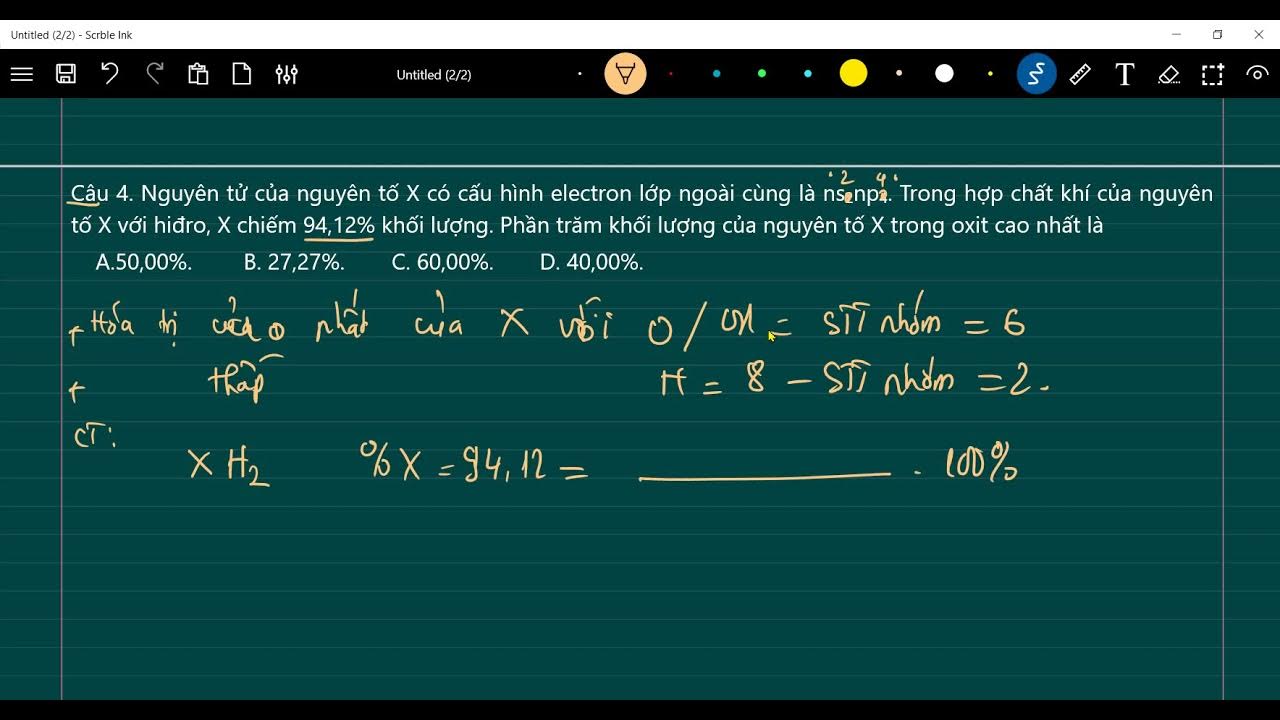 Untitled (2/2) - Scrble Ink
Untitled (2/2)
T
Câu 4. Nguyên tử của nguyên tố X có cấu hình electron lớp ngoài cùng là ns²np⁴. Trong hợp chất khí của nguyên
tố X với hiđro, X chiếm 94,12% khối lượng. Phần trăm khối lượng của nguyên tố X trong oxit cao nhất là
A.50,00%. B. 27,27%. C. 60,00%. D. 40,00%.
+ Hóa trị nhất của X với O / = STT nhóm = 6
+ thấp H = 8 - STT nhóm = 2.
CT:
XH₂ %X = 94,12 = . 100%